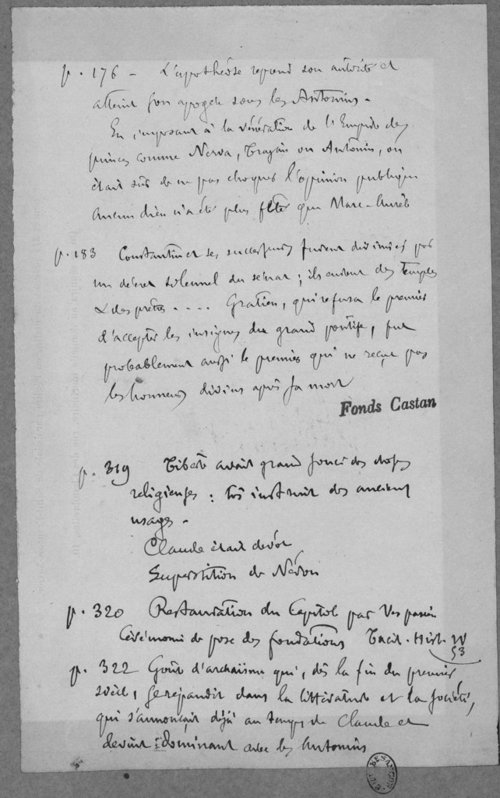 p. 176 - L'apothéose reprend son autorité et
atteint son apogée sous les Antonins.
En imposant à la vénération de l'Empire des
princes comme Nerva, Trajan ou Antonin, on
était sûr de ne pas choquer l'opinion publique
Aucun dieu n'a été plus fêté que Marc-Aurèle
p. 183 Constantin et ses successeurs furent divinisés par
un décret solennel du sénat ; ils eurent des temples
& des prêtres .... Gratien, qui refusa le premier
d'accepter les insignes du grand pontife, fut
probablement aussi le premier qui ne reçut pas
les honneurs divins après sa mort
Fonds Castan
p. 319 Tibère avait grand souci des choses
religieuses : très instruit des anciens
usages.
Claude était dévot
Superstition de Néron
p. 320 Restauration du Capitol par Vespasien
Cérémonie de pose des fondations Tacit. Hist. IV
53
p. 322 Goût d'archaïsme qui, dès la fin du premier
siècle, se répandit dans la littérature et la société,
qui s'annonçait déjà au temps de Claude et
devint dominant avec les Antonins